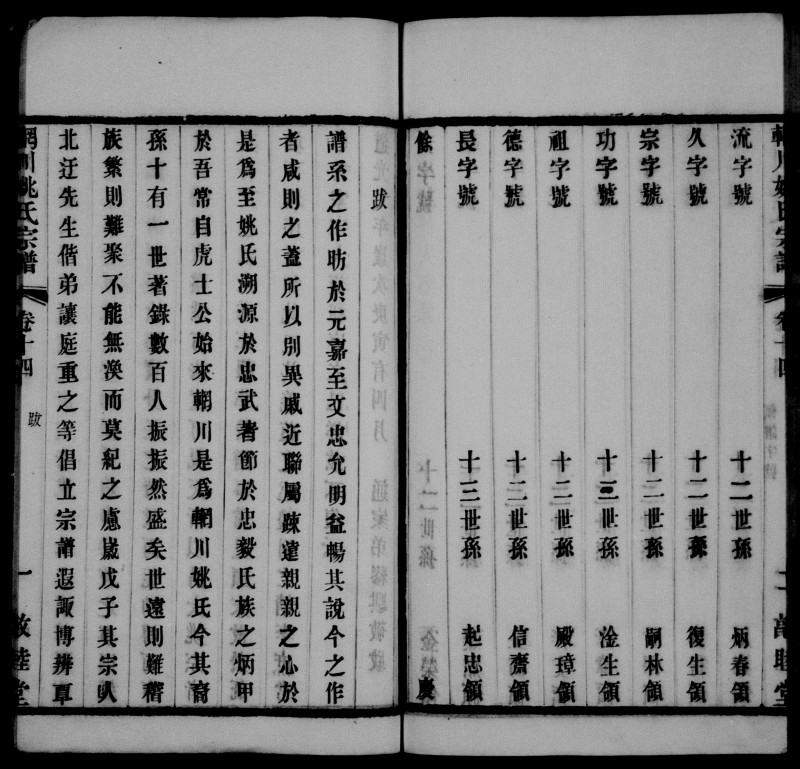 流字號 十二世孫 炳春領
久字號 十二世孫 復生領
宗字號 十二世孫 嗣林領
功字號 十三世孫 淦生領
祖字號 十二世孫 殿璋領
德字號 十二世孫 信齋領
長字號 十三世孫 起忠領
餘字號 十二世孫 慶
跋
譜系之作昉於元嘉至文忠允明益暢其說今之作
者咸則之葢所以別異戚近聯屬疎遠親親之心於
是爲至姚氏溯源於忠武著節於忠毅氏族之炳甲
於吾常自虎士公始來輞川是爲輞川姚氏今其裔
孫十有一世著錄數百人振振然盛矣世遠則難稽
族繁則難聚不能無渙而莫紀之慮嵗戊子其宗人
北迂先生偕弟讓庭重之等倡立宗譜遐諏博辨覃
輞川姚氏宗譜 卷十四 跋 一 敦睦堂